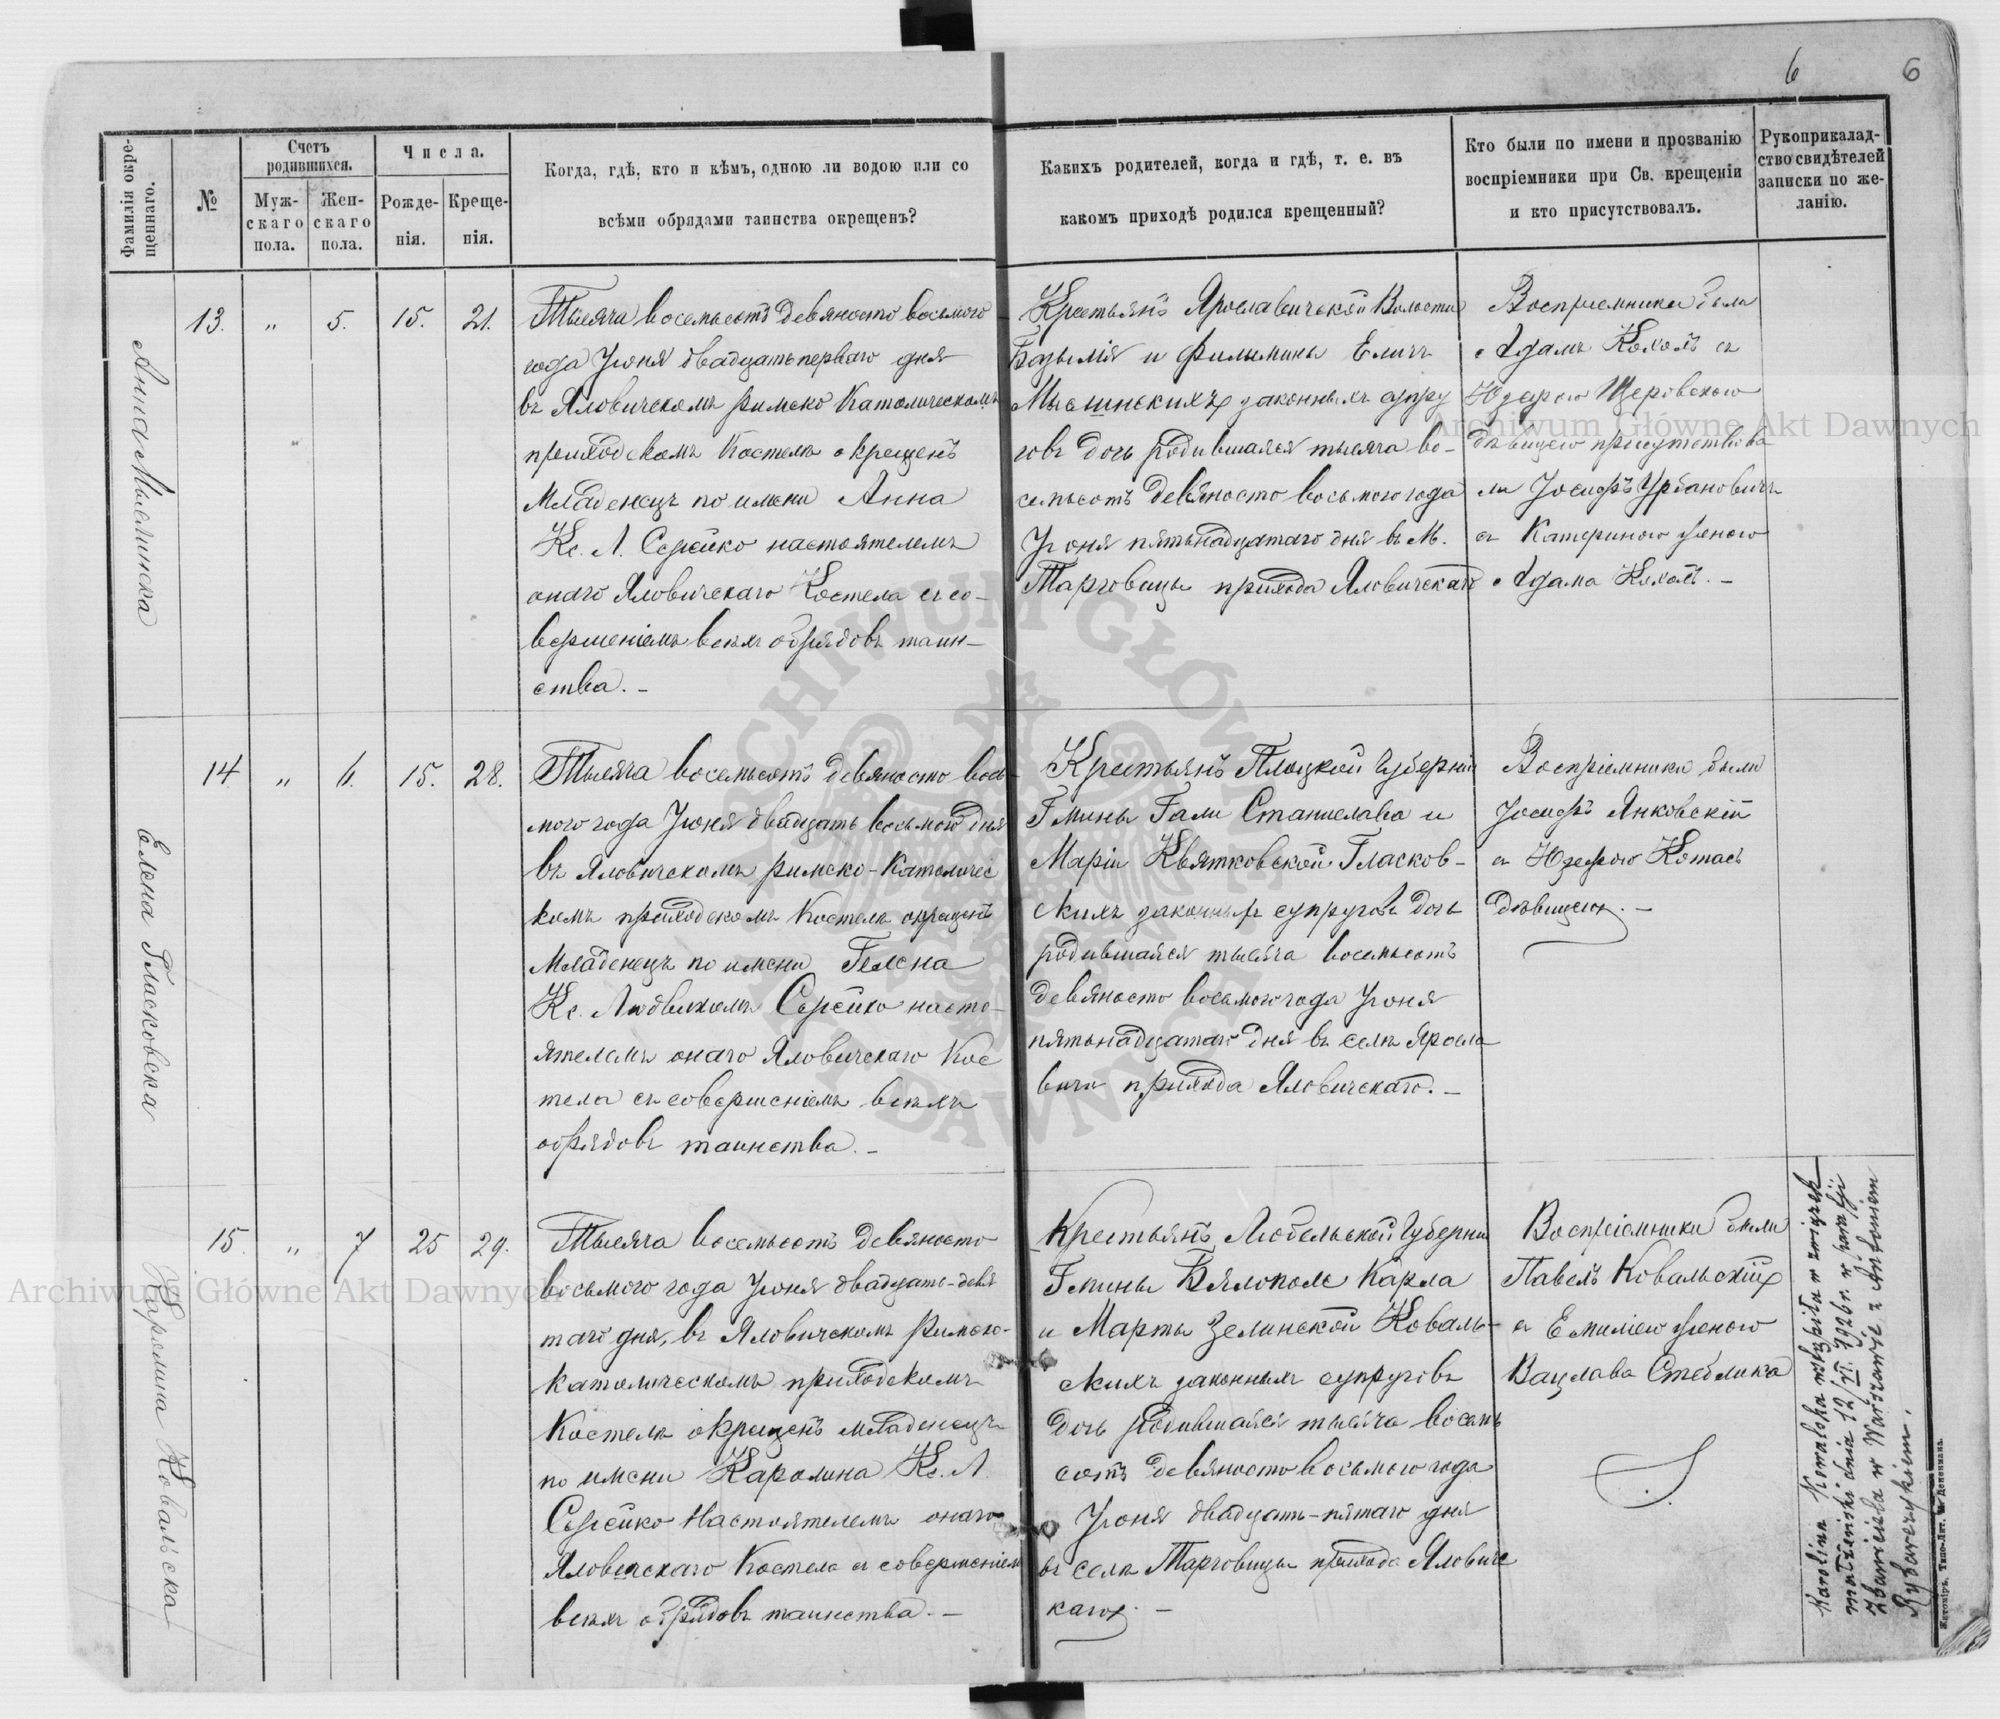 6
6
Фамилія окре-
щеннаго.
№
Счетъ
родившихся.
Муж-
скаго
пола.
Жен-
скаго
пола.
Числа.
Рожде-
нія.
Креще-
нія.
Когда, гдѣ, кто и кѣмъ, одною ли водою или со
всѣми обрядами таинства окрещенъ?
Какихъ родителей, когда и гдѣ, т. е. въ
какомъ приходѣ родился крещенный?
Кто были по имени и прозванію
воспріемники при Св. крещеніи
и кто присутствовалъ.
Рукоприклад-
ство свидѣтелей
записки по же-
ланію.
Анна Мыслинска
13. " 5. 15. 21.
Тысяча восемьсотъ девяносто восьмого
года Іюня двадцать перваго дня
въ Яловичскомъ Римско Католическомъ
приходскомъ Костелѣ окрещенъ
Младенецъ по имени Анна
Кс. Л. Серейко настоятелемъ
онаго Яловичскаго Костела съ со-
вершеніемъ всѣхъ обрядовъ таин-
ства. -
Крестьянъ Ярославичской Волости
и Филимины
Мыслинскихъ законныхъ супру
говъ дочь родившаяся тысяча во-
семьсотъ девяносто восьмого года
Іюня пятьнадцатаго дня въ М.
Торговицы прихода Яловичскаго
Воспріемники были
Адамъ Кохолъ съ
Юзефою
дѣвицею присутствова
ли Іосифъ Урбановичъ
съ Катериною женою
Адама Кохолъ. -
Елена Гласковска
14 " 6. 15. 28.
Тысяча восемьсотъ девяносто вось-
мого года Іюня двадцать восьмого дня
въ Яловичскомъ Римско-Католичес
комъ приходскомъ Костелѣ окрещенъ
Младенецъ по имени Гелена
Кс. Людвикомъ Серейко насто-
ятелемъ онаго Яловичскаго Кос
тела съ совершеніемъ всѣхъ
обрядовъ таинства. -
Крестьянъ Плоцкой Губерніи
Гмины Гали Станислава и
Маріи Квятковской Гласков-
скихъ законныхъ супруговъ дочь
родившаяся тысяча восемьсотъ
девяносто восьмого года Іюня
пятьнадцатаго дня въ селѣ Яросла
вичи прихода Яловичскаго. -
Воспріемники были
Іосифъ Янковскій
съ Юзефою Котасъ
дѣвицею. -
Каролина Ковальска
15. " 7 25 29.
Тысяча восемьсотъ девяносто
восьмого года Іюня двадцать-девя
таго дня, въ Яловичскомъ Римско-
католическомъ приходскомъ
Костелѣ окрещенъ младенецъ
по имени Каролина Кс. Л.
Серейко Настоятелемъ онаго
Яловичскаго Костела съ совершеніемъ
всѣхъ обрядовъ таинства. -
Крестьянъ Любельской Губерніи
Гмины Бялополе Карла
и Марты Зелинской Коваль-
скихъ законныхъ супруговъ
дочь родившаяся тысяча восемь
сотъ девяносто восьмого года
Іюня двадцать-пятаго дня
въ селѣ Торговицы прихода Яловичс
каго. -
Воспріемники были
Павелъ Ковальскій
съ Емиліею женою
Вацлава Стеблика
Karolina Kowalska wstąpiła w związek
małżeński dnia 12/VI. 1926 r. w parafji
Zbawiciela w Warszawie z Antonim
Rybarczykiem.
Житоміръ, Типо-Лит. М. Дененмана.
Archiwum Główne Akt Dawnych
Archiwum Główne Akt Dawnych
ARCHIWUM GŁÓWNE AKT DAWNYCH